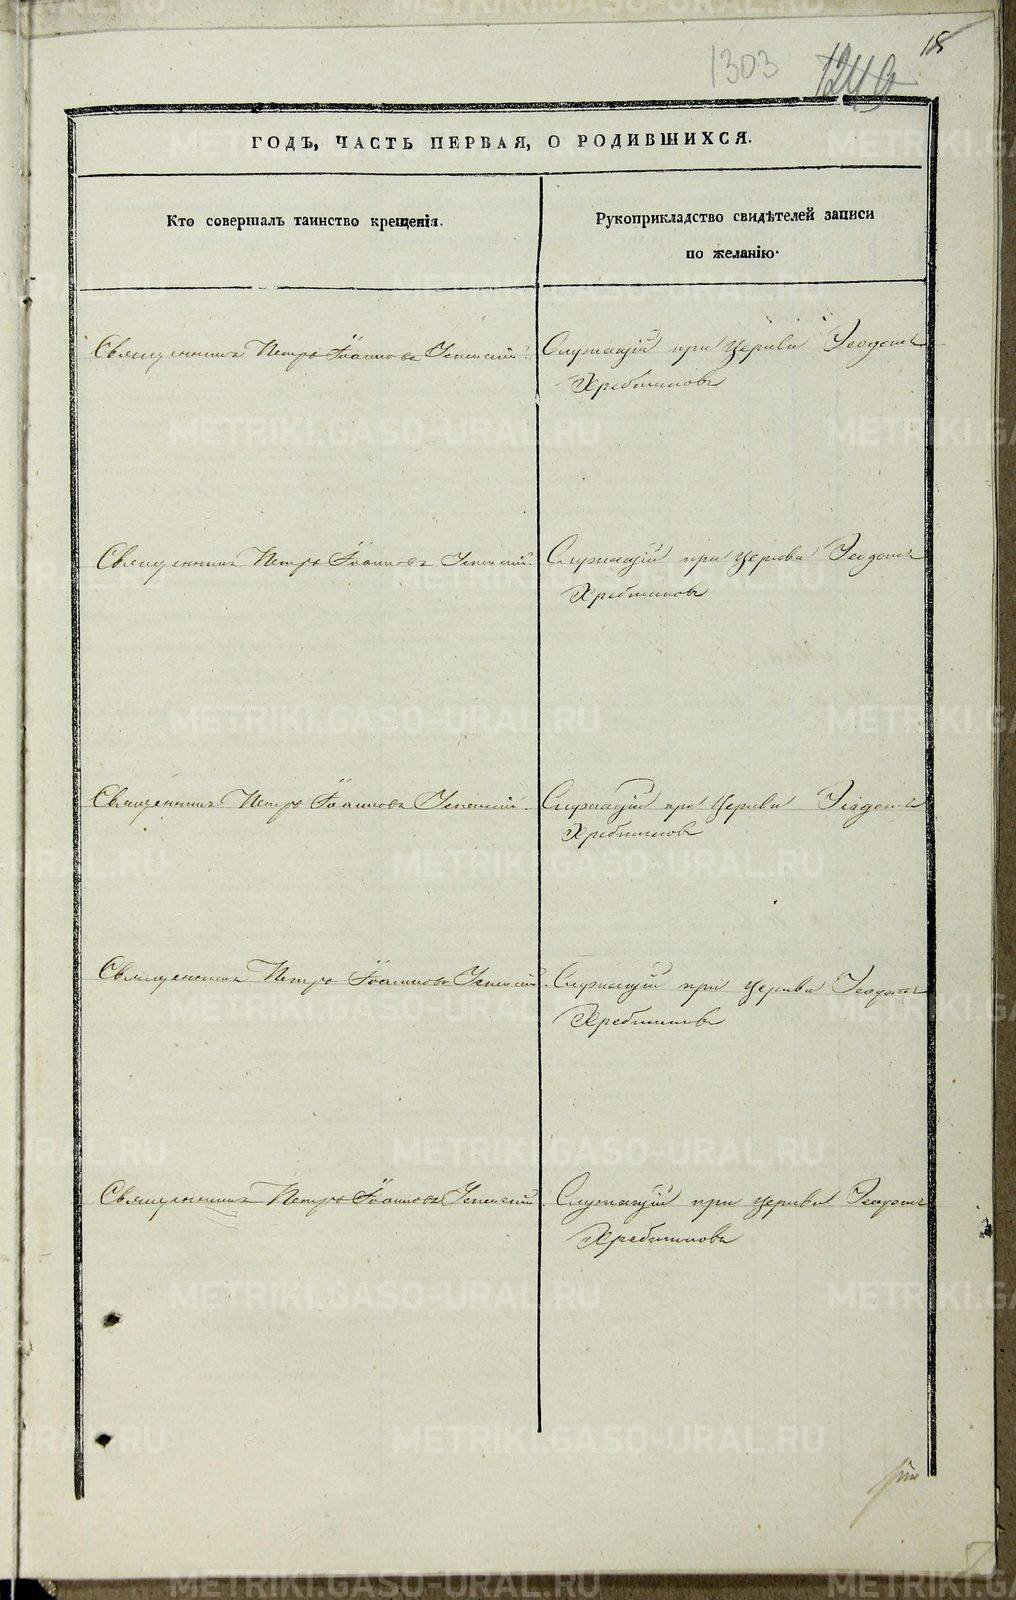 18
1303
1249
ГОДЪ, ЧАСТЬ ПЕРВАЯ, О РОДИВШИХСЯ.
Кто совершалъ таинство крещенія.
Рукоприкладство свидѣтелей записи
по желанію.
Священникъ Петръ Іоанновъ Успенскій.
Служащій при Церкви Ѳеодотъ
Хребтиковъ
Священникъ Петръ Іоанновъ Успенскій.
Служащій при Церкви Ѳеодотъ
Хребтиковъ
Священникъ Петръ Іоанновъ Успенскій.
Служащій при Церкви Ѳеодотъ
Хребтиковъ
Священникъ Петръ Іоанновъ Успенскій.
Служащій при Церкви Ѳеодотъ
Хребтиковъ
Священникъ Петръ Іоанновъ Успенскій.
Служащій при Церкви Ѳеодотъ
Хребтиковъ
METRIKI.GASO-URAL.RU